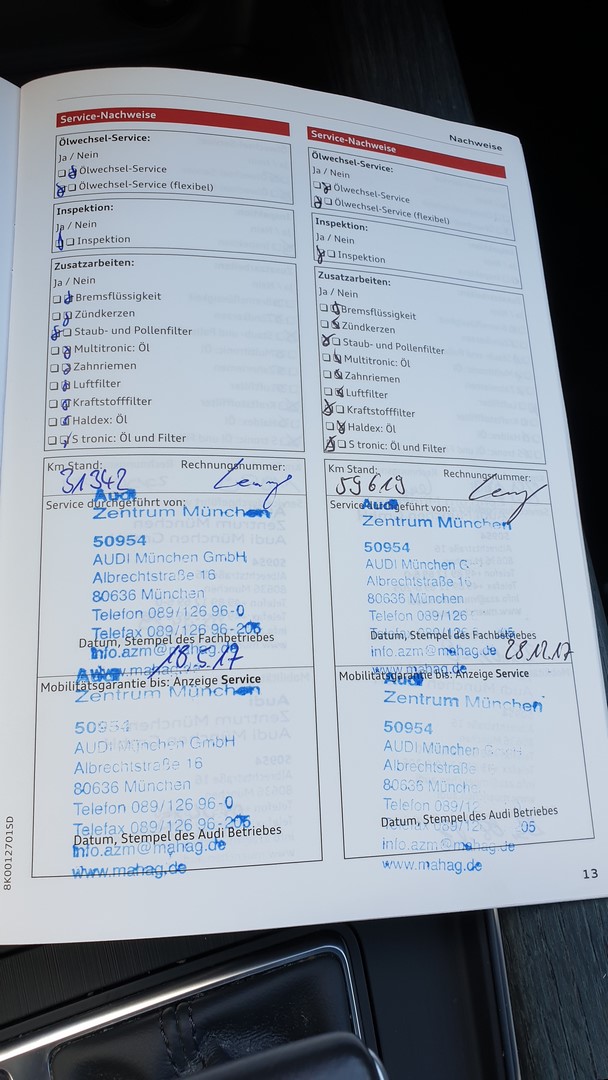 Nachweise
Service-Nachweise
Ölwechsel-Service:
Ja / Nein
Ölwechsel-Service
Ölwechsel-Service (flexibel)
Inspektion:
Ja / Nein
Inspektion
Zusatzarbeiten:
Ja / Nein
Bremsflüssigkeit
Zündkerzen
Staub- und Pollenfilter
Multitronic: Öl
Zahnriemen
Luftfilter
Kraftstofffilter
Haldex: Öl
S tronic: Öl und Filter
Km Stand: Rechnungsnummer:
31342
Service durchgeführt von:
Audi
Zentrum München
50954
AUDI München GmbH
Albrechtstraße 16
80636 München
Telefon 089/126 96-0
Telefax 089/126 96-205
Datum, Stempel des Fachbetriebes
info.azm@mahag.de
www.mahag.de
18.5.17
Mobilitätsgarantie bis: Anzeige Service
Audi
Zentrum München
50954
AUDI München GmbH
Albrechtstraße 16
80636 München
Telefon 089/126 96-0
Telefax 089/126 96-205
Datum, Stempel des Audi Betriebes
info.azm@mahag.de
www.mahag.de
Service-Nachweise
Ölwechsel-Service:
Ja / Nein
Ölwechsel-Service
Ölwechsel-Service (flexibel)
Inspektion:
Ja / Nein
Inspektion
Zusatzarbeiten:
Ja / Nein
Bremsflüssigkeit
Zündkerzen
Staub- und Pollenfilter
Multitronic: Öl
Zahnriemen
Luftfilter
Kraftstofffilter
Haldex: Öl
S tronic: Öl und Filter
Km Stand: Rechnungsnummer:
59619
Service durchgeführt von:
Audi
Zentrum München
50954
AUDI München G
Albrechtstraße 16
80636 München
Telefon 089/126
Telefax 089/126 205
Datum, Stempel des Fachbetriebes
info.azm@mahag.de 28.12.17
www.mahag.de
Mobilitätsgarantie bis: Anzeige Service
Audi
Zentrum München
50954
AUDI München
Albrechtstraße
80636 Münche
Telefon 089/12
Datum, Stempel des Audi Betriebes
Telefax 089/12 05
info.azm@mahag.de
www.mahag.de
8K0012701SD
13